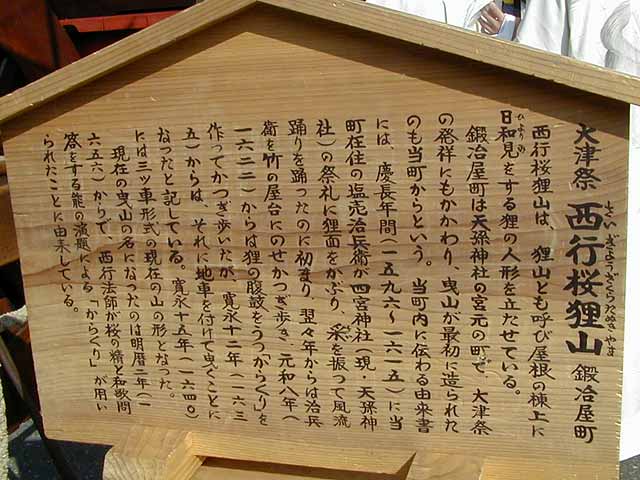 大津祭 西行桜狸山 鍛冶屋町
さいぎょうざくらたぬきやま
西行桜狸山は、狸山とも呼び屋根の棟上に
日和見をする狸の人形を立たせている。
ひよりみ
鍛冶屋町は天孫神社の宮元の町で、大津祭
の発祥にもかかわり、曳山が最初に造られた
のも当町からという。当町内に伝わる由来書
には、慶長年間(一五九六~一六一五)に当
町在住の塩売治兵衛が四宮神社(現・天孫神
社)の祭礼に狸面をかぶり、采を振って風流
踊りを踊ったのに初まり、翌々年からは治兵
衛を竹の屋台にのせかつぎ歩き、元和八年(
一六二二)からは狸の腹鼓をうつ「からくり」を
作ってかつぎ歩いたが、寛永十二年(一六三
五)からは、それに地車を付けて曳くことに
なったと記している。寛永十五年(一六四〇)
には三ツ車形式の現在の山の形となった。
現在の曳山の名になったのは明暦二年(一
六五六)からで、西行法師が桜の精と和歌問
答をする能の演題による「からくり」が用い
られたことに由来している。